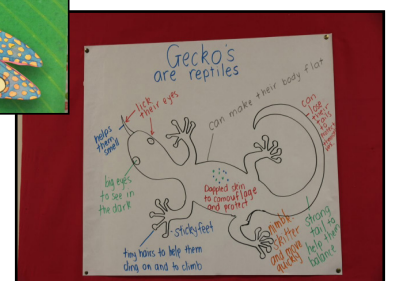 Gecko's
are reptiles
lick
their eyes
can make their body flat
can
lose
their
tails
to
helps
them
smell
big eyes
to see in
the dark
Dappled skin
to camouflage
and protect
sticky feet
tiny hairs to help them
cling on and to climb
nimble
skitter
and move
quickly
strong
tail to
help them
balance